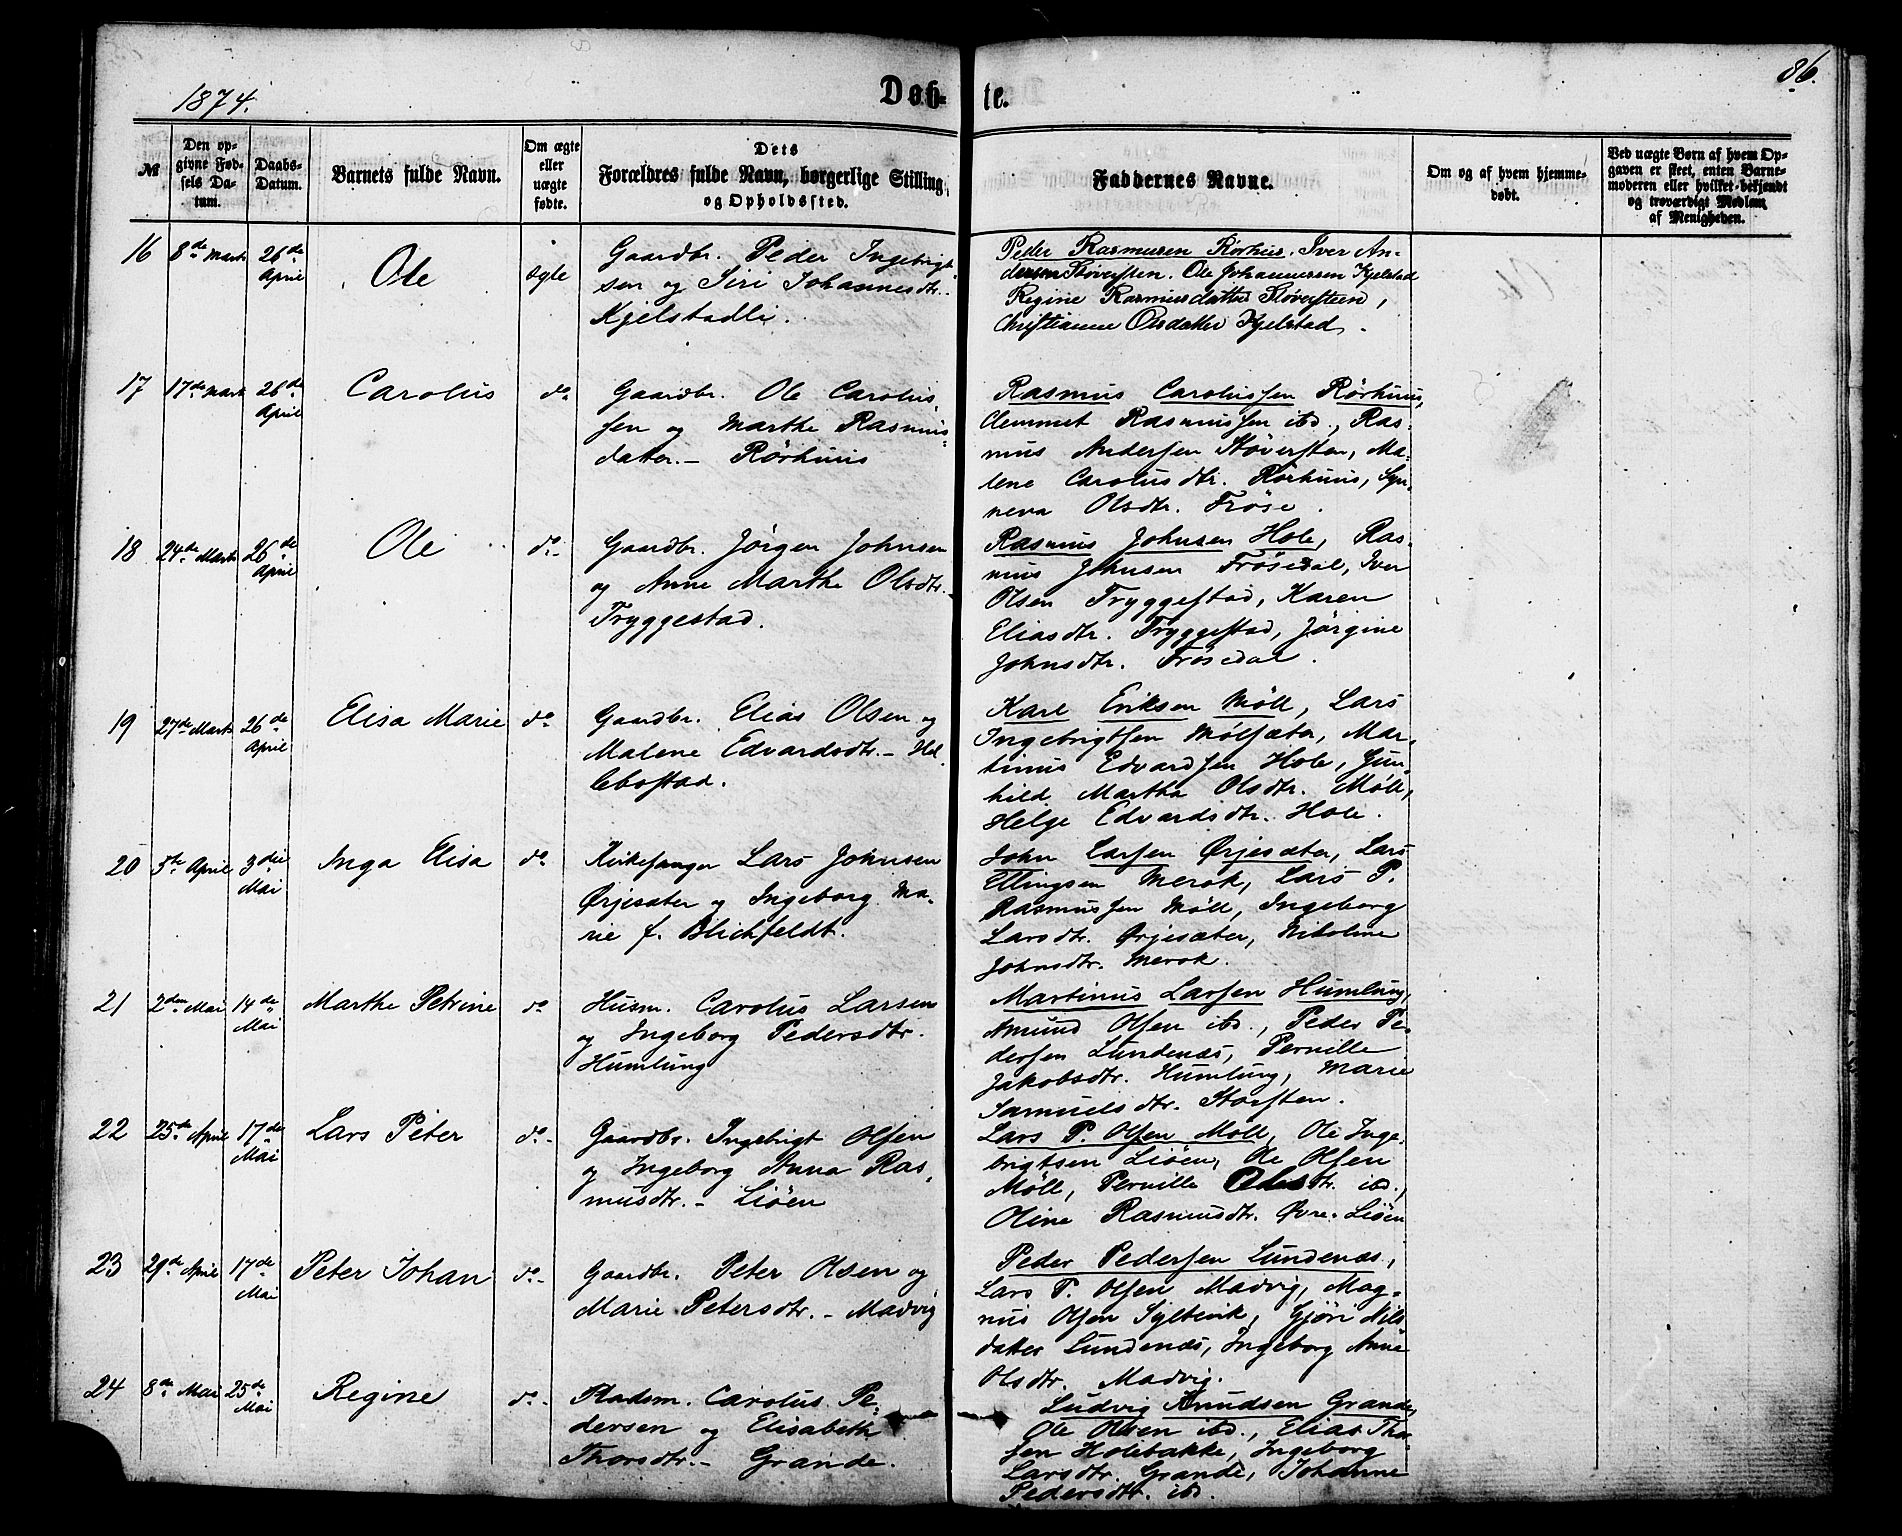 1874.
Døb-
te.
86.
№
Den op-
givne Fød-
sels Da-
tum.
Daabs-
Datum.
Barnets fulde Navn.
Om ægte
eller
uægte
fødte.
Dets
Forældres fulde Navn, borgerlige Stilling
og Opholdssted.
Faddernes Navne.
Om og af hvem hjemme-
døbt.
Ved uægte Børn af hvem Op-
gaven er skeet, enten Barne-
moderen eller hvilket bekjendt
og troværdigt Medlem
af Menigheden.
16 8de Marts 26de April
Ole
ægte
Gaardbr. Peder Ingebrigt-
sen og Siri Johannesdtr. -
Kjelstadli.
Peder Rasmusen Rørhus. Iver An-
dersen Støversten. Ole Johannessen Kjelstad
Regine Rasmusdatter Støversteen,
Christianne Olsdatter Kjelstad.
17 17de Marts 26de April
Carolus
do
Gaardbr. Ole Carolus-
sen og Marthe Rasmus-
datter. - Rørhuus
Rasmus Carolussen Rørhuus,
Clemmet Rasmussen ibd., Ras-
mus Andersen Støversten, Ma-
lene Carolusdtr. Rørhuus, Syn-
neva Olsdtr. Frøse.
18 24de Marts 26de April
Ole
do -
Gaardbr. Jørgen Johnsen
og Anne Marthe Olsdtr. -
Tryggestad.
Rasmus Johnsen Hole, Ras-
mus Johnsen Frøsedal, Iver
Olsen Tryggestad, Karen
Eliasdtr. Tryggestad, Jørgine
Johnsdtr. Frøsedal.
19 27de Marts 26de April
Elisa Marie
do
Gaardbr. Elias Olsen og
Malene Edvardsdtr. - Hel-
lebostad.
Karl Eriksen Møll, Lars
Ingebrigtsen Mølsæter, Mar-
tinus Edvardsen Hole, Gun-
hild Martha Olsdtr. Møll,
Helge Edvardsdtr. Hole.
20 5te April 3die Mai
Inga Elisa
do
Kirkesanger Lars Johnsen
Ørjesæter og Ingeborg Ma-
rie f. Blichfeldt.
John Larsen Ørjesæter, Lars
Ellingsen Merok, Lars P.
Rasmussen Møll, Ingeborg
Larsdtr. Ørjesæter, Nikoline
Johnsdtr. Merok.
21 2den Mai 14de Mai
Marthe Petrine
do
Husm. Carolus Larsen
og Ingeborg Pedersdtr.
Humlung
Martinus Larsen Humlung,
Amund Olsen ibd., Peder Pe-
dersen Lundenæs, Pernille
Jakobsdtr. Humlung, Marie
Samuelsdtr. Storsten.
22 25de April 17de Mai
Lars Peter
do -
Gaardbr. Ingebrigt Olsen
og Ingeborg Anna Ras-
musdtr. - Liøen
Lars P. Olsen Møll, Ole Inge-
brigtsen Liøen, Ole Olsen
Møll, Pernille Olsdtr. ibd.,
Oline Rasmusdtr. Øvre-Liøen
23 29de April 17de Mai
Peter Johan
do -
Gaardbr. Peter Olsen og
Marie Petersdtr. - Madvig
Peder Pedersen Lundenæs,
Lars P. Olsen Madvig, Mag-
nus Olsen Syltevik, Gjøri Nils-
datter Lundenæs, Ingeborg Anne
Olsdtr. Madvig.
24 8de Mai 25de Mai
Regine
do -
Pladsm. Carolus Pe-
dersen og Elisabeth
Thorsdtr. - Grande.
Ludvig Knudsen Grande,
Ole Olsen ibd., Elias Thor-
sen Holebakke, Ingeborg
Larsdtr. Grande, Johanne
Pedersdtr. ibd.